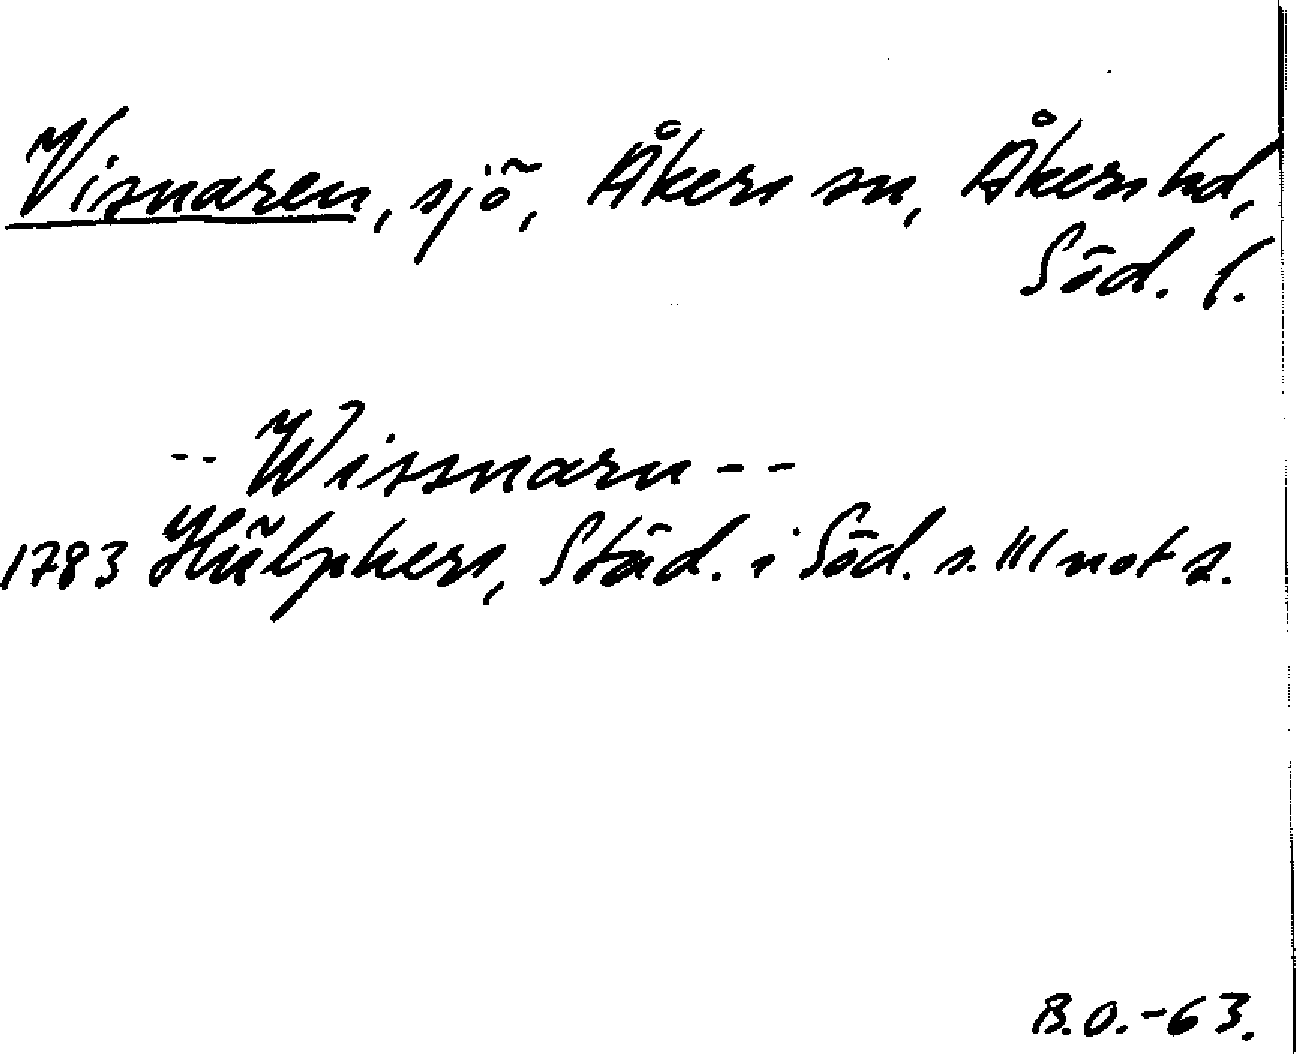 Visnaren, sjö, Åkers sn, Åkers hd,
Söd. l.
-- Wissnarn --
1783 Hülphers, Städ. i Söd. s. 111 not 2.
B.O.-63.